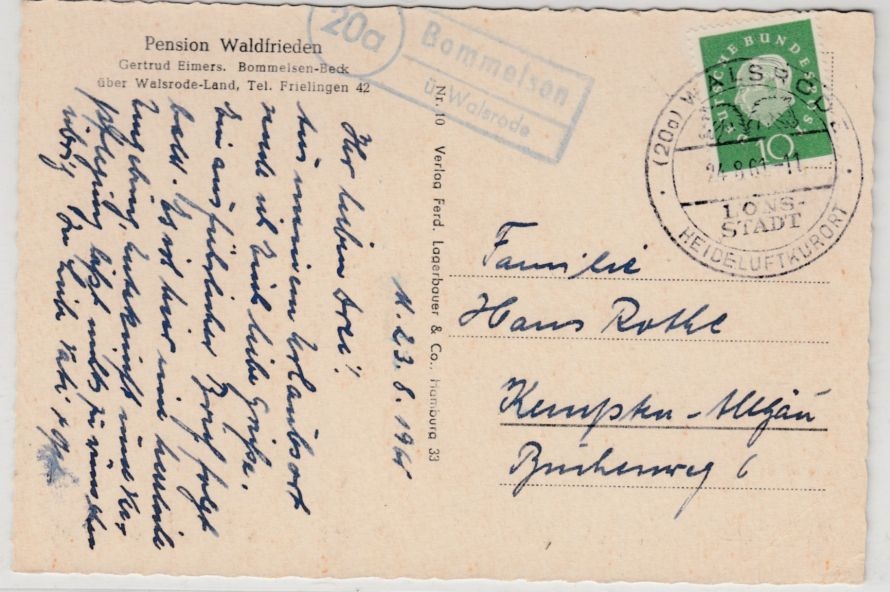 Pension Waldfrieden
Gertrud Eimers. Bommelsen-Beck
über Walsrode-Land, Tel. Frielingen 42
20a
Bommelsen
ü. Walsrode
DEUTSCHE BUNDESPOST
10
(20a) WALSRODE
24.8.61-11
LÖNS-
STADT
HEIDELUFTKURORT
Nr. 10 Verlag Ferd. Lagerbauer & Co., Hamburg 33
M. 23. 8. 196
Ihr lieben Drei!
Aus unserem Urlaubsort
sende ich Euch liebe Grüße.
Ein ausführlicher Brief folgt
bald. Es ist hier eine herrliche
Umgebung, Unterkunft und Ver-
pflegung läßt nichts zu wünschen
übrig. Eure Vati
Familie
Hans Rothe
Kempten-Allgäu
Buchenweg 6